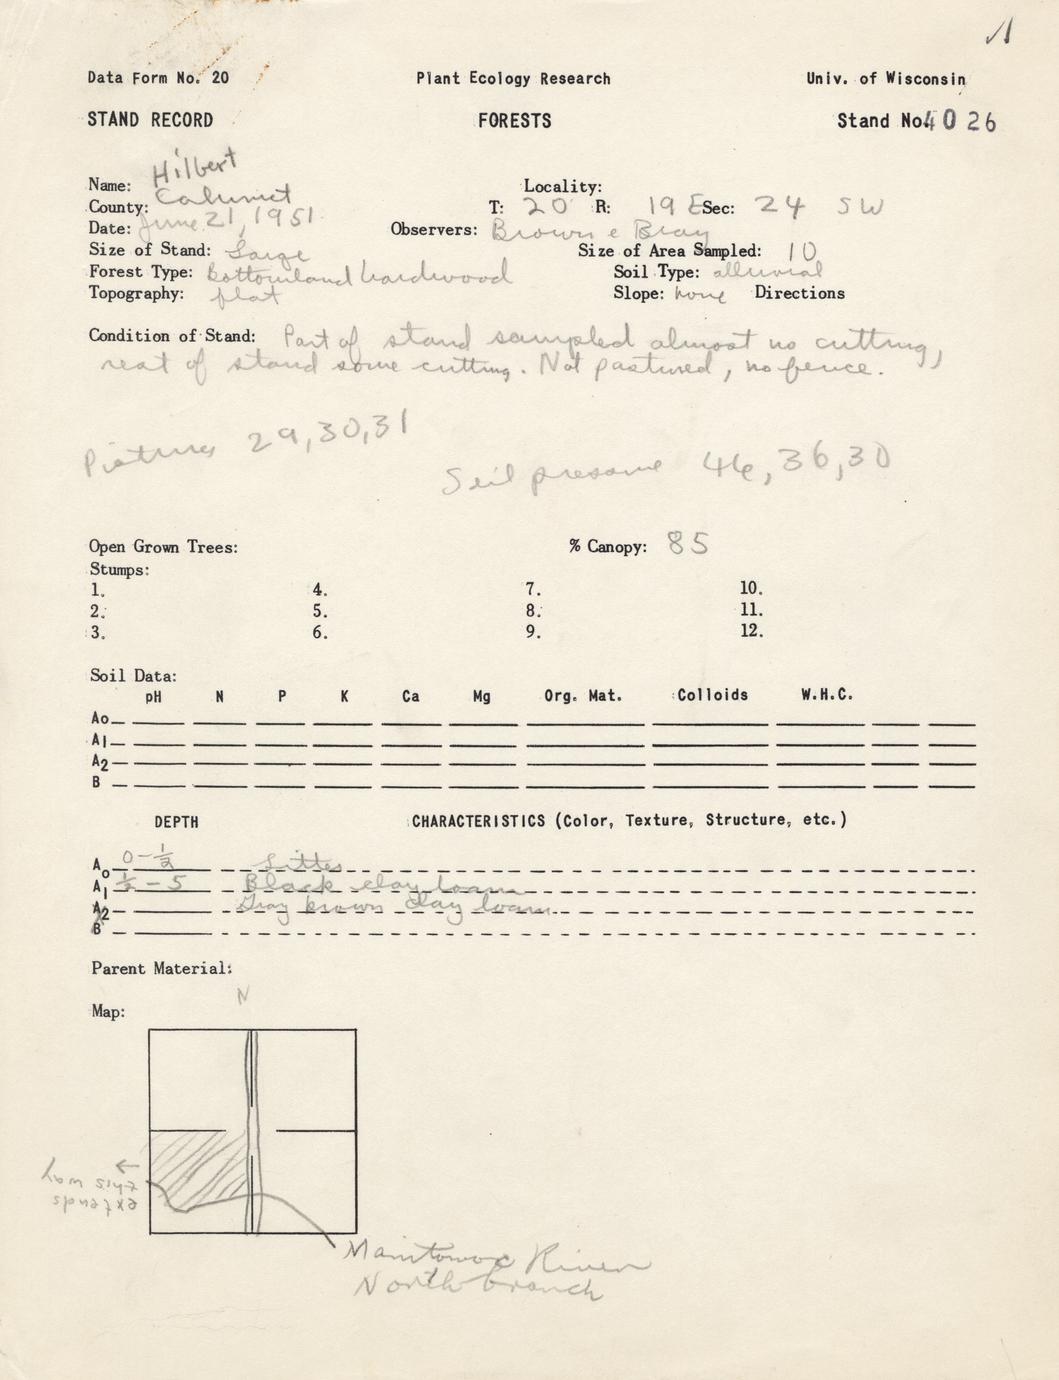 Data Form No. 20 Plant Ecology Research Univ. of Wisconsin
STAND RECORD FORESTS Stand No. 4026
Name: Hilbert Locality:
County: Calumet T: 20 R: 19 E Sec: 24 SW
Date: June 21, 1951 Observers: Brown & Bray
Size of Stand: Large Size of Area Sampled: 10
Forest Type: Bottomland hardwood Soil Type: alluvial
Topography: flat Slope: none Directions
Condition of Stand: Part of stand sampled almost no cutting,
rest of stand some cutting. Not pastured, no fence.
Pictures 29,30,31
Soil pressure 46,36,30
Open Grown Trees: % Canopy: 85
Stumps:
1. 4. 7. 10.
2. 5. 8. 11.
3. 6. 9. 12.
Soil Data:
pH N P K Ca Mg Org. Mat. Colloids W.H.C.
Ao
A1
A2
B
DEPTH CHARACTERISTICS (Color, Texture, Structure, etc.)
Ao 0-½ Litter
A1 ½-5 Black clay loam
A2 Gray brown clay loam
B
Parent Material:
N
Map:
extends
this way
Manitowoc River
North branch